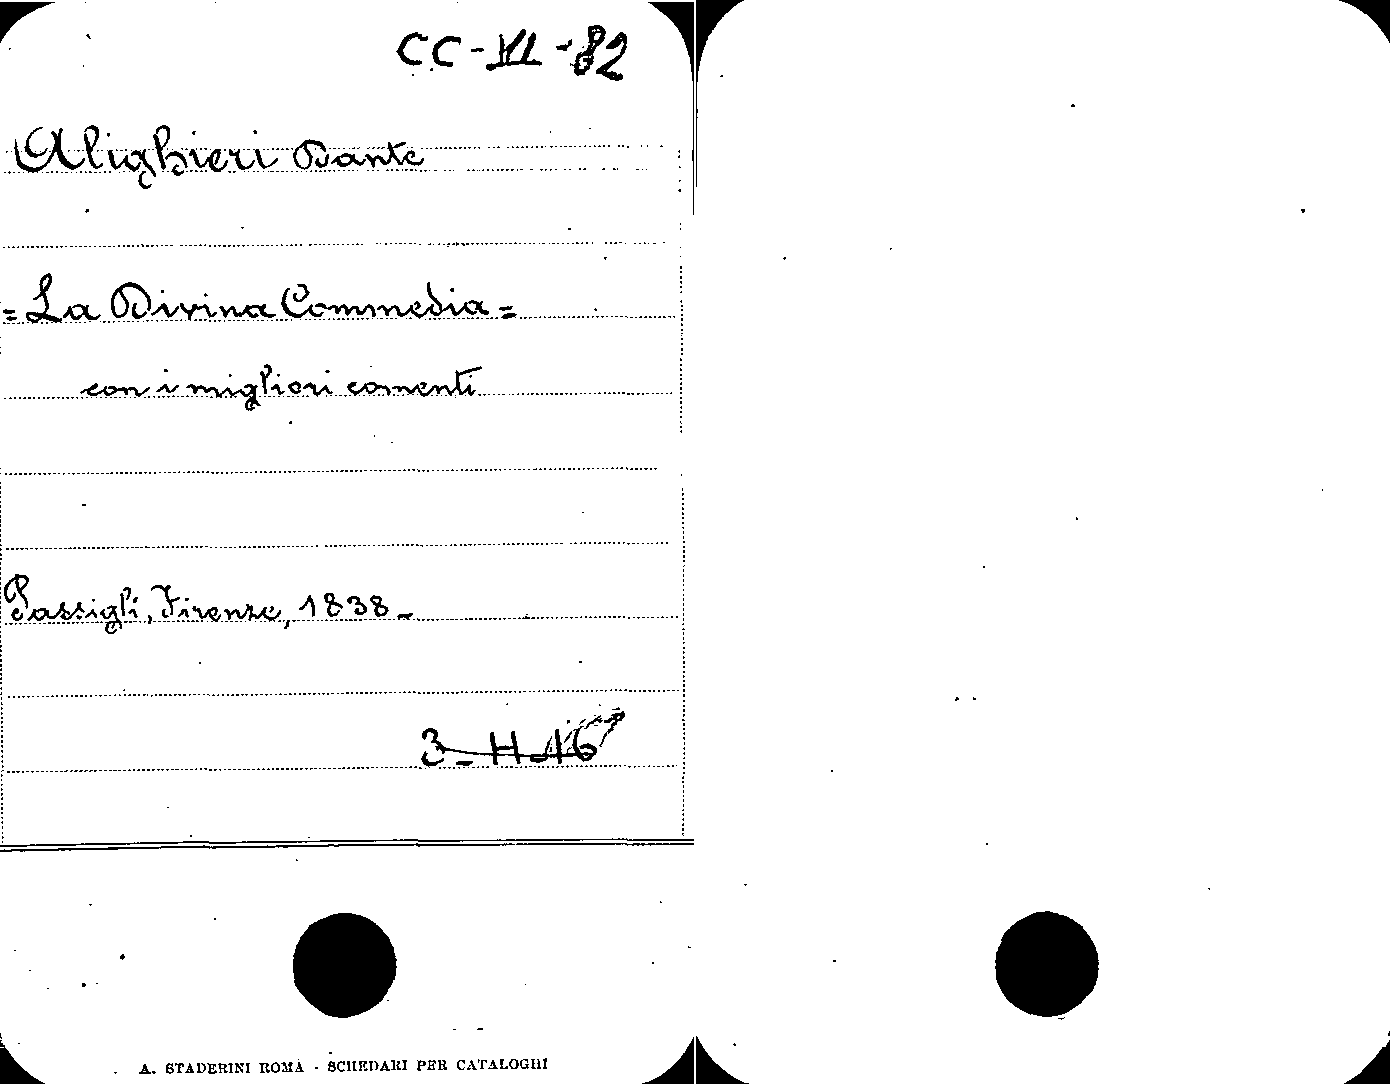 CC-VI-82
Alighieri Dante
=La Divina Commedia=
con i migliori comenti
Passigli, Firenze, 1838-
3-H-16
A. STADERINI ROMA - SCHEDARI PER CATALOGHI